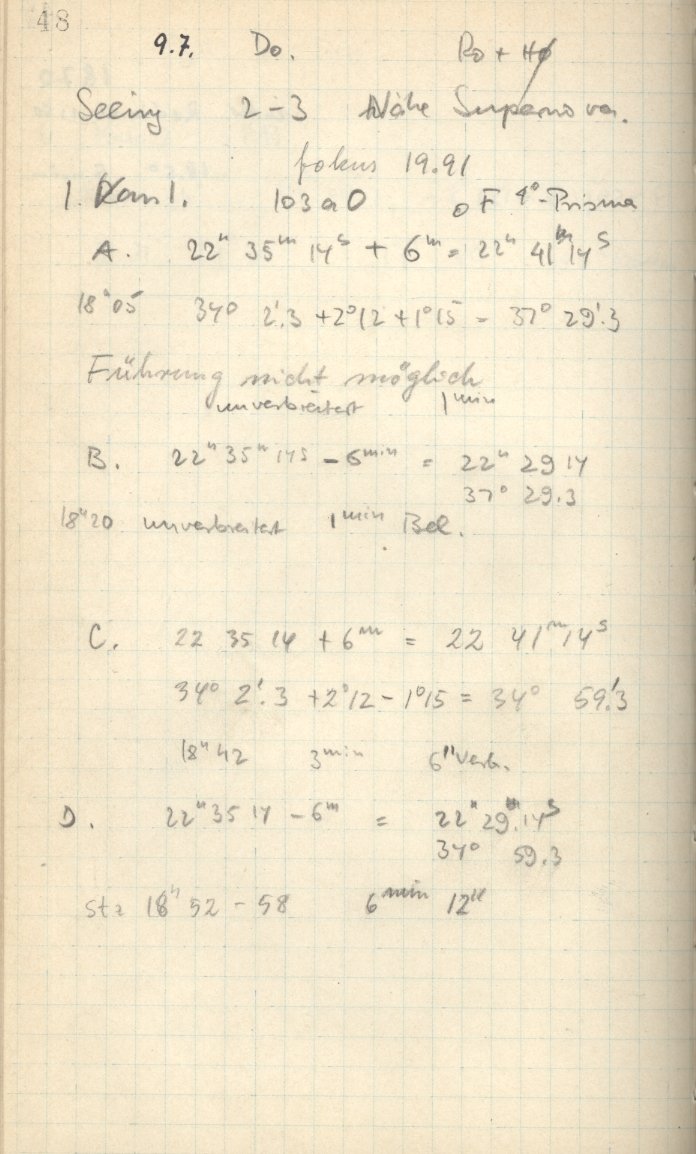 48
9.7. Do. Ro + Hø
Seeing 2-3 Nähe Supernova.
fokus 19.91
1. 103aO oF 4°-Prisma
A. 22ʰ 35ᵐ 14ˢ + 6ᵐ = 22ʰ 41ᵐ 14ˢ
18ʰ05 34° 2'.3 + 2°12 + 1°15 = 37° 29'.3
Führung nicht möglich
unverbreitert 1 min
B. 22ʰ 35ᵐ 14ˢ - 6 min = 22ʰ 29 14
37° 29.3
18ʰ20 unverbreitert 1 min Bel.
C. 22 35 14 + 6ᵐ = 22 41ᵐ 14ˢ
34° 2'.3 + 2°12 - 1°15 = 34° 59'.3
18ʰ 42 3 min 6" Verb.
D. 22ʰ 35 14 - 6ᵐ = 22ʰ 29ᵐ 14ˢ
34° 59.3
Stz 18ʰ 52 - 58 6 min 12"